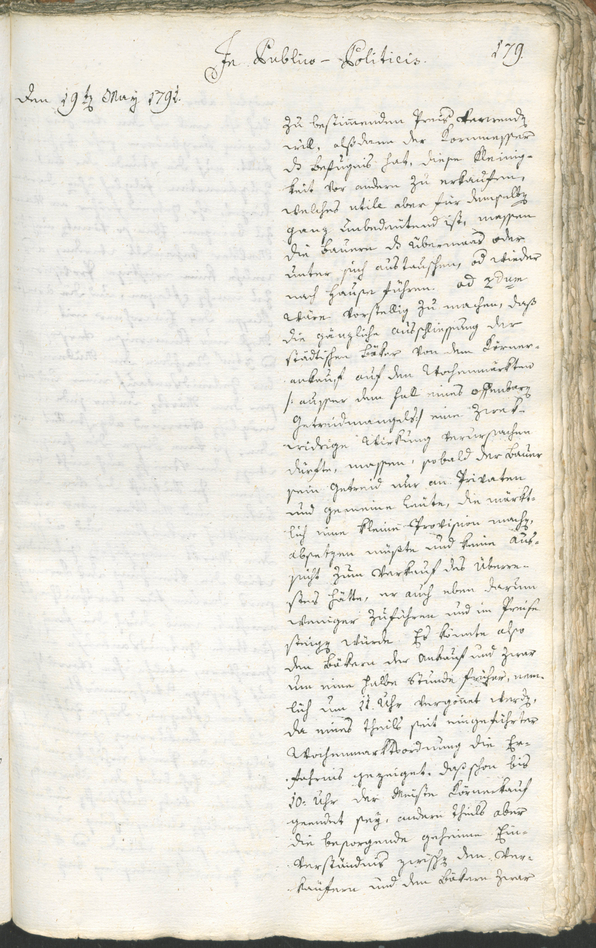 In Publico-Politicis.
179.
den 19t May 1791.
zu bestimmenden Preis verwendt
will, alßdann der Kornmesser
die Befugnis hat, diese Kleinig-
keit vor andern zu erkaufen,
welches utile aber für denselben
ganz unbedeutend ist, massen
die Bauern das Übermaas oder
unter sich austauschen, od wieder
nach Hause führen. ad 2dum
Wäre vorstellig zu machen, daß
die gänzliche Ausschliessung der
städtischen Böker von dem Körner-
ankauf auf den Wochenmärkten
/: ausser dem Fal eines offenbaren
Getreidmangels :/ eine Zwek-
widrige Wirkung verursachen
dürfte, massen, sobald der Bauer
sein Getreid nur an Privaten
und gemeine Leute, die märkt-
lich eine kleine Provision machen,
absetzen müßte und keine Aus-
sicht zum Verkauf des Überre-
stes hätte, er auch eben darum
weniger zuführen und im Preise
steigen würde. Es könnte also
den Bökern der Ankauf und zwar
um eine halbe Stunde früher, nem-
lich um 11. Uhr vergönt werden,
da eines theils seit eingeführter
Wochenmarktsordnung die Er-
fahrnis gezeiget, daß schon bis
10. Uhr der meiste Körnerkauf
geendet sey, andern theils aber
die besorgende geheime Ein-
verständnis zwischen den Ver-
käufern und den Bökern zwar